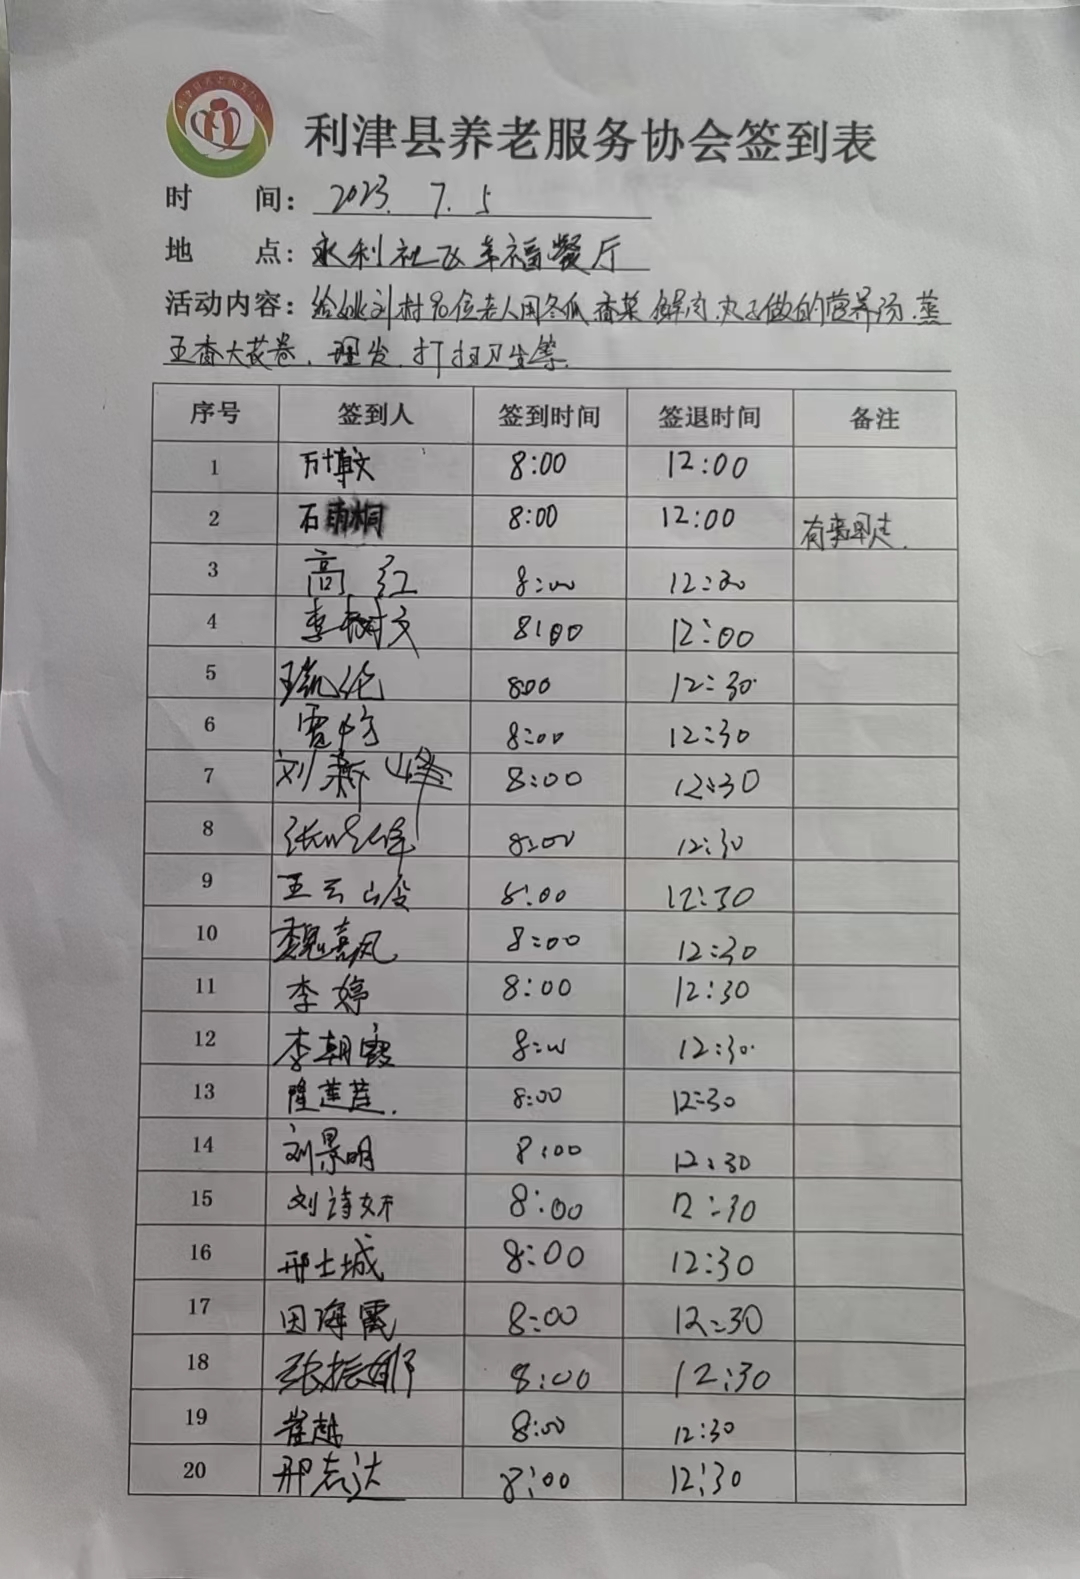 利津县养老服务协会
利津县养老服务协会签到表
时 间：2023.7.5
地 点：永利社区幸福餐厅
活动内容：给姚刘村90位老人用冬瓜、香菜、鲜肉、丸子做的营养汤、蒸
五香大花卷、理发、打扫卫生等.
序号 签到人 签到时间 签退时间 备注
1 万博文 8:00 12:00
2 石雨桐 8:00 12:00 有事早走.
3 高红 8:00 12:30
4 李树文 8:00 12:00
5 8:00 12:30
6 8:00 12:30
7 刘新峰 8:00 12:30
8 8:00 12:30
9 王云 8:00 12:30
10 魏喜凤 8:00 12:30
11 李婷 8:00 12:30
12 李朝霞 8:00 12:30
13 隆莲莲. 8:00 12:30
14 刘景明 8:00 12:30
15 刘诗妍 8:00 12:30
16 邢士城 8:00 12:30
17 田海霞 8:00 12:30
18 张振娜 8:00 12:30
19 崔越 8:00 12:30
20 邢志达 8:00 12:30